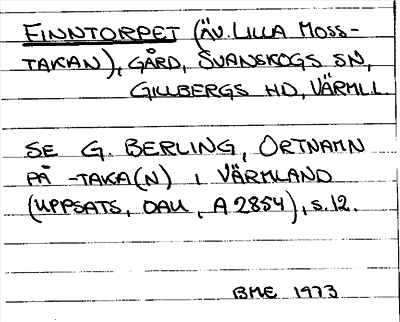 FINNTORPET (ÄV. LILLA MOSS-
TAKAN), GÅRD, SVANSKOGS SN,
GILLBERGS HD, VÄRML.
SE G. BERLING, ORTNAMN
PÅ -TAKA(N) I VÄRMLAND
(UPPSATS, DAU, A 2854), s. 12.
BME 1973